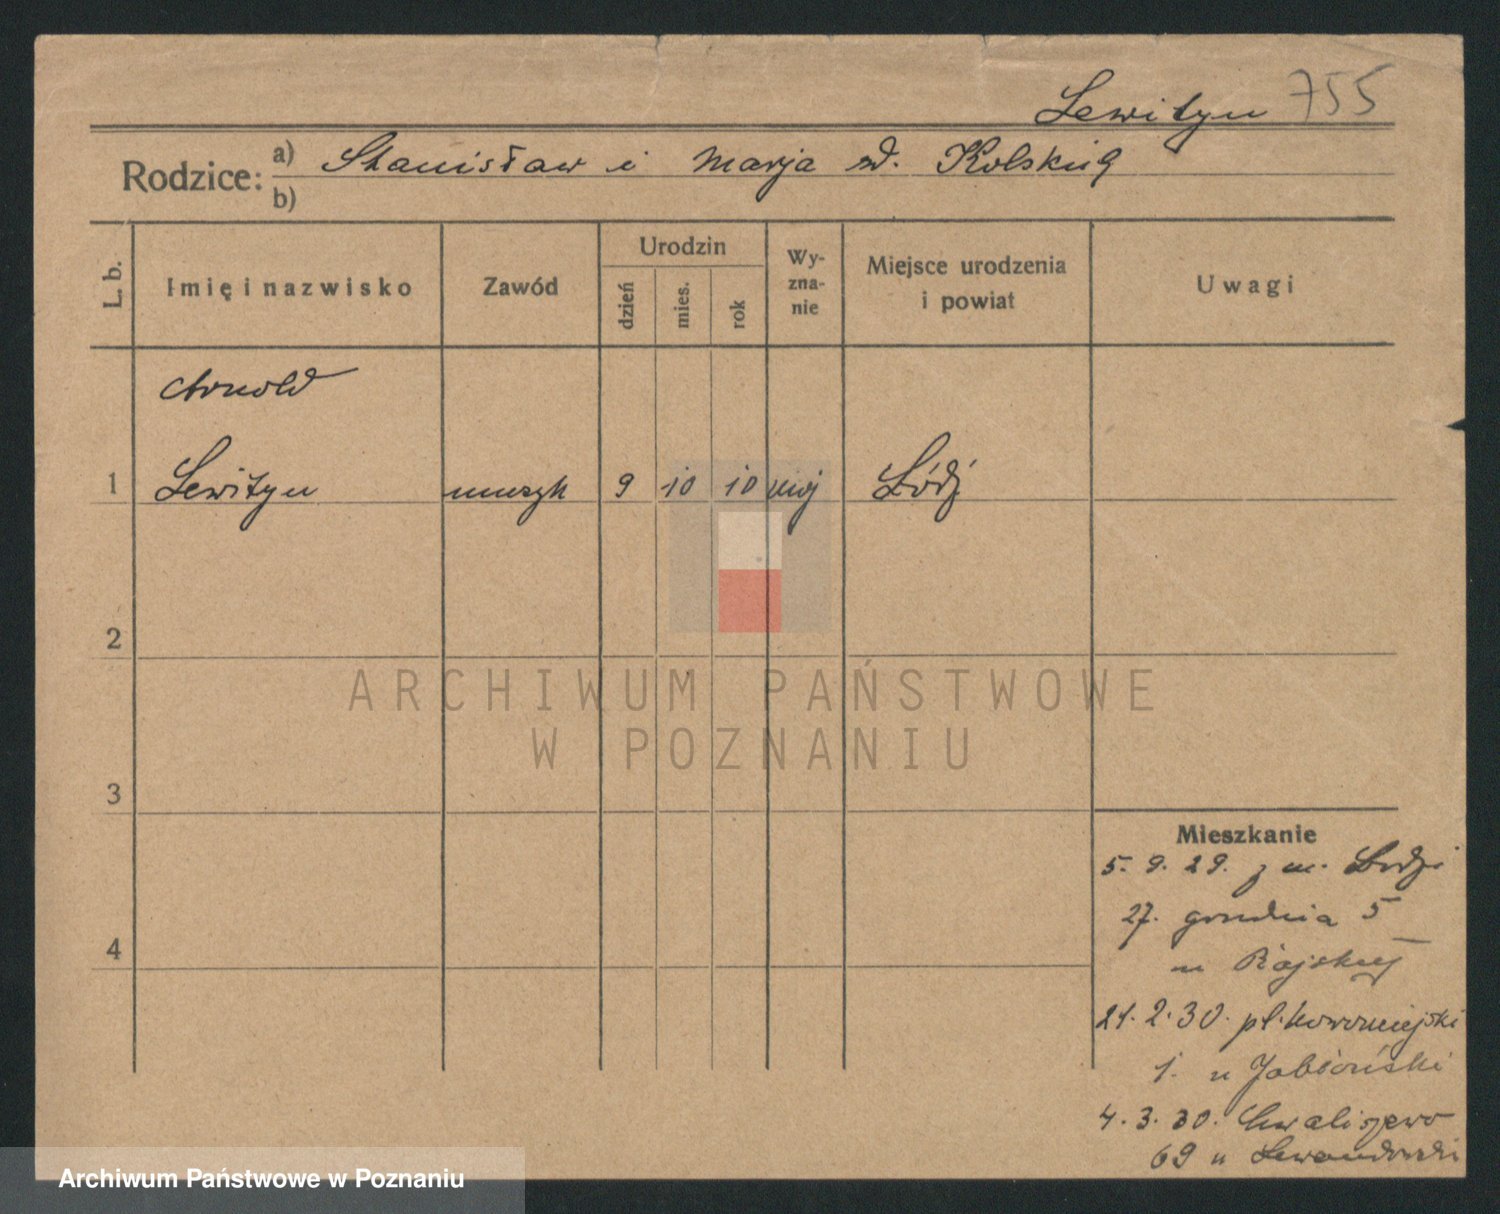 Lewityn 755
Rodzice: a) Stanisław i Marja zd. Kolskich
b)
L. b.
Imię i nazwisko
Zawód
Urodzin
dzień
mies.
rok
Wy-
zna-
nie
Miejsce urodzenia
i powiat
Uwagi
Arnold
1 Lewityn muzyk 9 10 10 mojż Łódź
2
3
4
Mieszkanie
5. 9. 29. z m. Łodzi
27. grudnia 5
u Rajskiej
21. 2. 30. pl. Nowomiejski
1. u Jabłoński
4. 3. 30. Chwaliszewo
69 u Lewandowski
ARCHIWUM PAŃSTWOWE
W POZNANIU
Archiwum Państwowe w Poznaniu